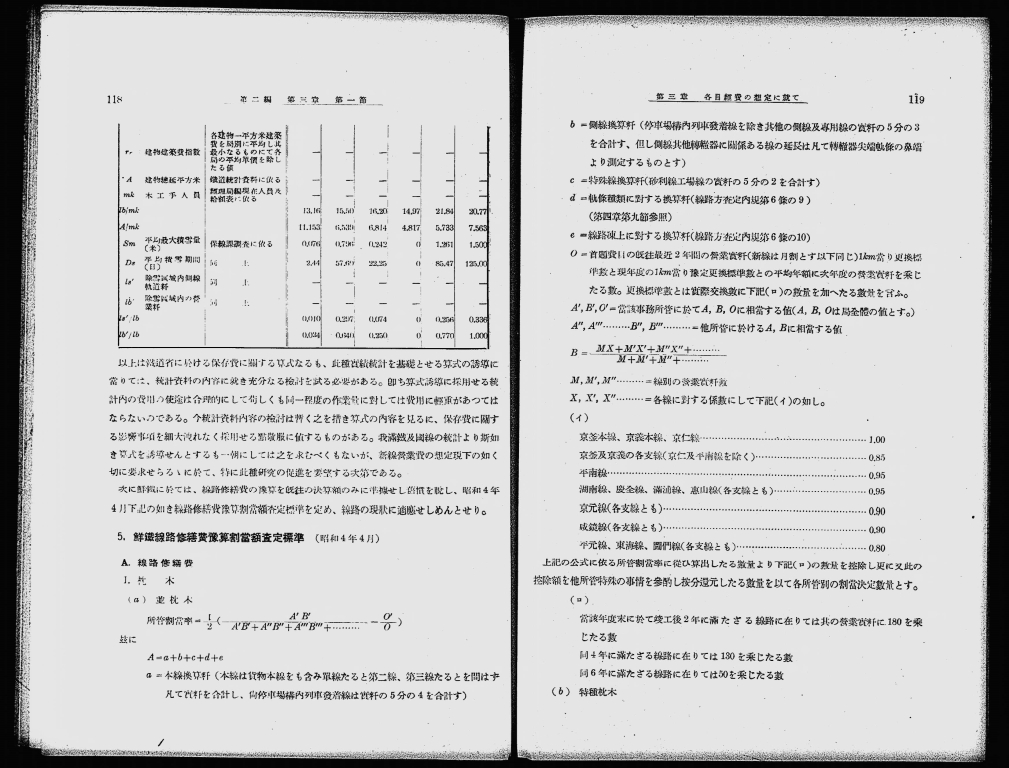 118 第二編 第三章 第一節
r, 建物建築費指數 各建物一平方米建築費を局別に平均し其最小なるものにて各局の平均單價を除したる値 — — — — — —
A 建物總延平方米 鐵道統計資料に依る — — — — — —
mk 木工手人員 經理局調現在人員及給額表に依る — — — — — —
lb/mk 13.16 15.50 16.20 14.97 21.84 20.77
A/mk 11.153 6.539 6.814 4.817 5.733 7.563
Sm 平均最大積雪量(米) 保線課調査に依る 0.076 0.796 0.242 0 1.261 1.500
Ds 平均積雪期間(日) 同上 2.44 57.67 22.25 0 85.47 125.00
ls' 除雪區域内側線軌道粁 同上 — — — — — —
lb' 除雪區域内の營業粁 同上 — — — — — —
ls'/lb 0.010 0.297 0.074 0 0.256 0.336
lb'/lb 0.034 0.640 0.250 0 0.770 1.000
以上は鐵道省に於ける保存費に關する算式なるも、此種實績統計を基礎とせる算式の誘導に
當りては、統計資料の内容に就き充分なる檢討を試る必要がある。卽ち算式誘導に採用せる統
計内の費用の使途は合理的にして苟しくも同一程度の作業量に對しては費用に輕重があつては
ならないのである。今統計資料内容の檢討は暫く之を措き算式の内容を見るに、保存費に關す
る影響事項を細大洩れなく採用せる點敬服に値するものがある。我滿鐵及國線の統計より斯如
き算式を誘導せんとするも一朝にしては之を求むべくもないが、新線營業費の想定現下の如く
切に要求せらるゝに於て、特に此種研究の促進を要望する次第である。
次に鮮鐵に於ては、線路修繕費の豫算を既往の決算額のみに準據せし舊慣を脫し、昭和4年
4月下記の如き線路修繕費豫算割當額査定標準を定め、線路の現狀に適應せしめんとせり。
5. 鮮鐵線路修繕費豫算割當額査定標準 (昭和4年4月)
A. 線路修繕費
1. 枕木
(a) 並枕木
所管割當率 = 1/2 ( A'B' / A'B'+A''B''+A'''B'''+……… − O'/O )
玆に
A=a+b+c+d+e
a =本線換算粁(本線は貨物本線をも含み單線たると第二線、第三線たるとを問はず
凡て實粁を合計し、尙停車場構内列車發着線は實粁の5分の4を合計す)
第三章 各目經費の想定に就て 119
b =側線換算粁(停車場構内列車發着線を除き其他の側線及專用線の實粁の5分の3
を合計す、但し側線其他轉轍器に關係ある線の延長は凡て轉轍器尖端軌條の鼻端
より測定するものとす)
c =特殊線換算粁(砂利線工場線の實粁の5分の2を合計す)
d =軌條種類に對する換算粁(線路方査定内規第6條の9)
(第四章第九節參照)
e =線路凍上に對する換算粁(線路方査定内規第6條の10)
O =首題費目の既往最近2年間の營業實粁(新線は月割とす以下同じ)1km當り更換標
準數と現年度の1km當り豫定更換標準數との平均年額に次年度の營業實粁を乘じ
たる數。更換標準數とは實際交換數に下記(ロ)の數量を加へたる數量を言ふ。
A', B', O'=當該事務所管に於てA, B, Oに相當する値(A, B, Oは局全體の値とす。)
A'', A'''………B'', B'''………=他所管に於けるA, Bに相當する値
B= MX+M'X'+M''X''+……… / M+M'+M''+………
M, M', M''………=線別の營業實粁數
X, X', X''………=各線に對する係數にして下記(イ)の如し。
(イ)
京釜本線、京義本線、京仁線………1.00
京釜及京義の各支線(京仁及平南線を除く)………0.85
平南線………0.95
湖南線、慶全線、滿浦線、惠山線(各支線とも)………0.95
京元線(各支線とも)………0.90
咸鏡線(各支線とも)………0.90
平元線、東海線、圖們線(各支線とも)………0.80
上記の公式に依る所管割當率に從ひ算出したる數量より下記(ロ)の數量を控除し更に又此の
控除額を他所管特殊の事情を參酌し按分還元したる數量を以て各所管別の割當決定數量とす。
(ロ)
當該年度末に於て竣工後2年に滿たざる線路に在りては其の營業實粁に180を乘
じたる數
同4年に滿たざる線路に在りては130を乘じたる數
同6年に滿たざる線路に在りては50を乘じたる數
(b) 特種枕木